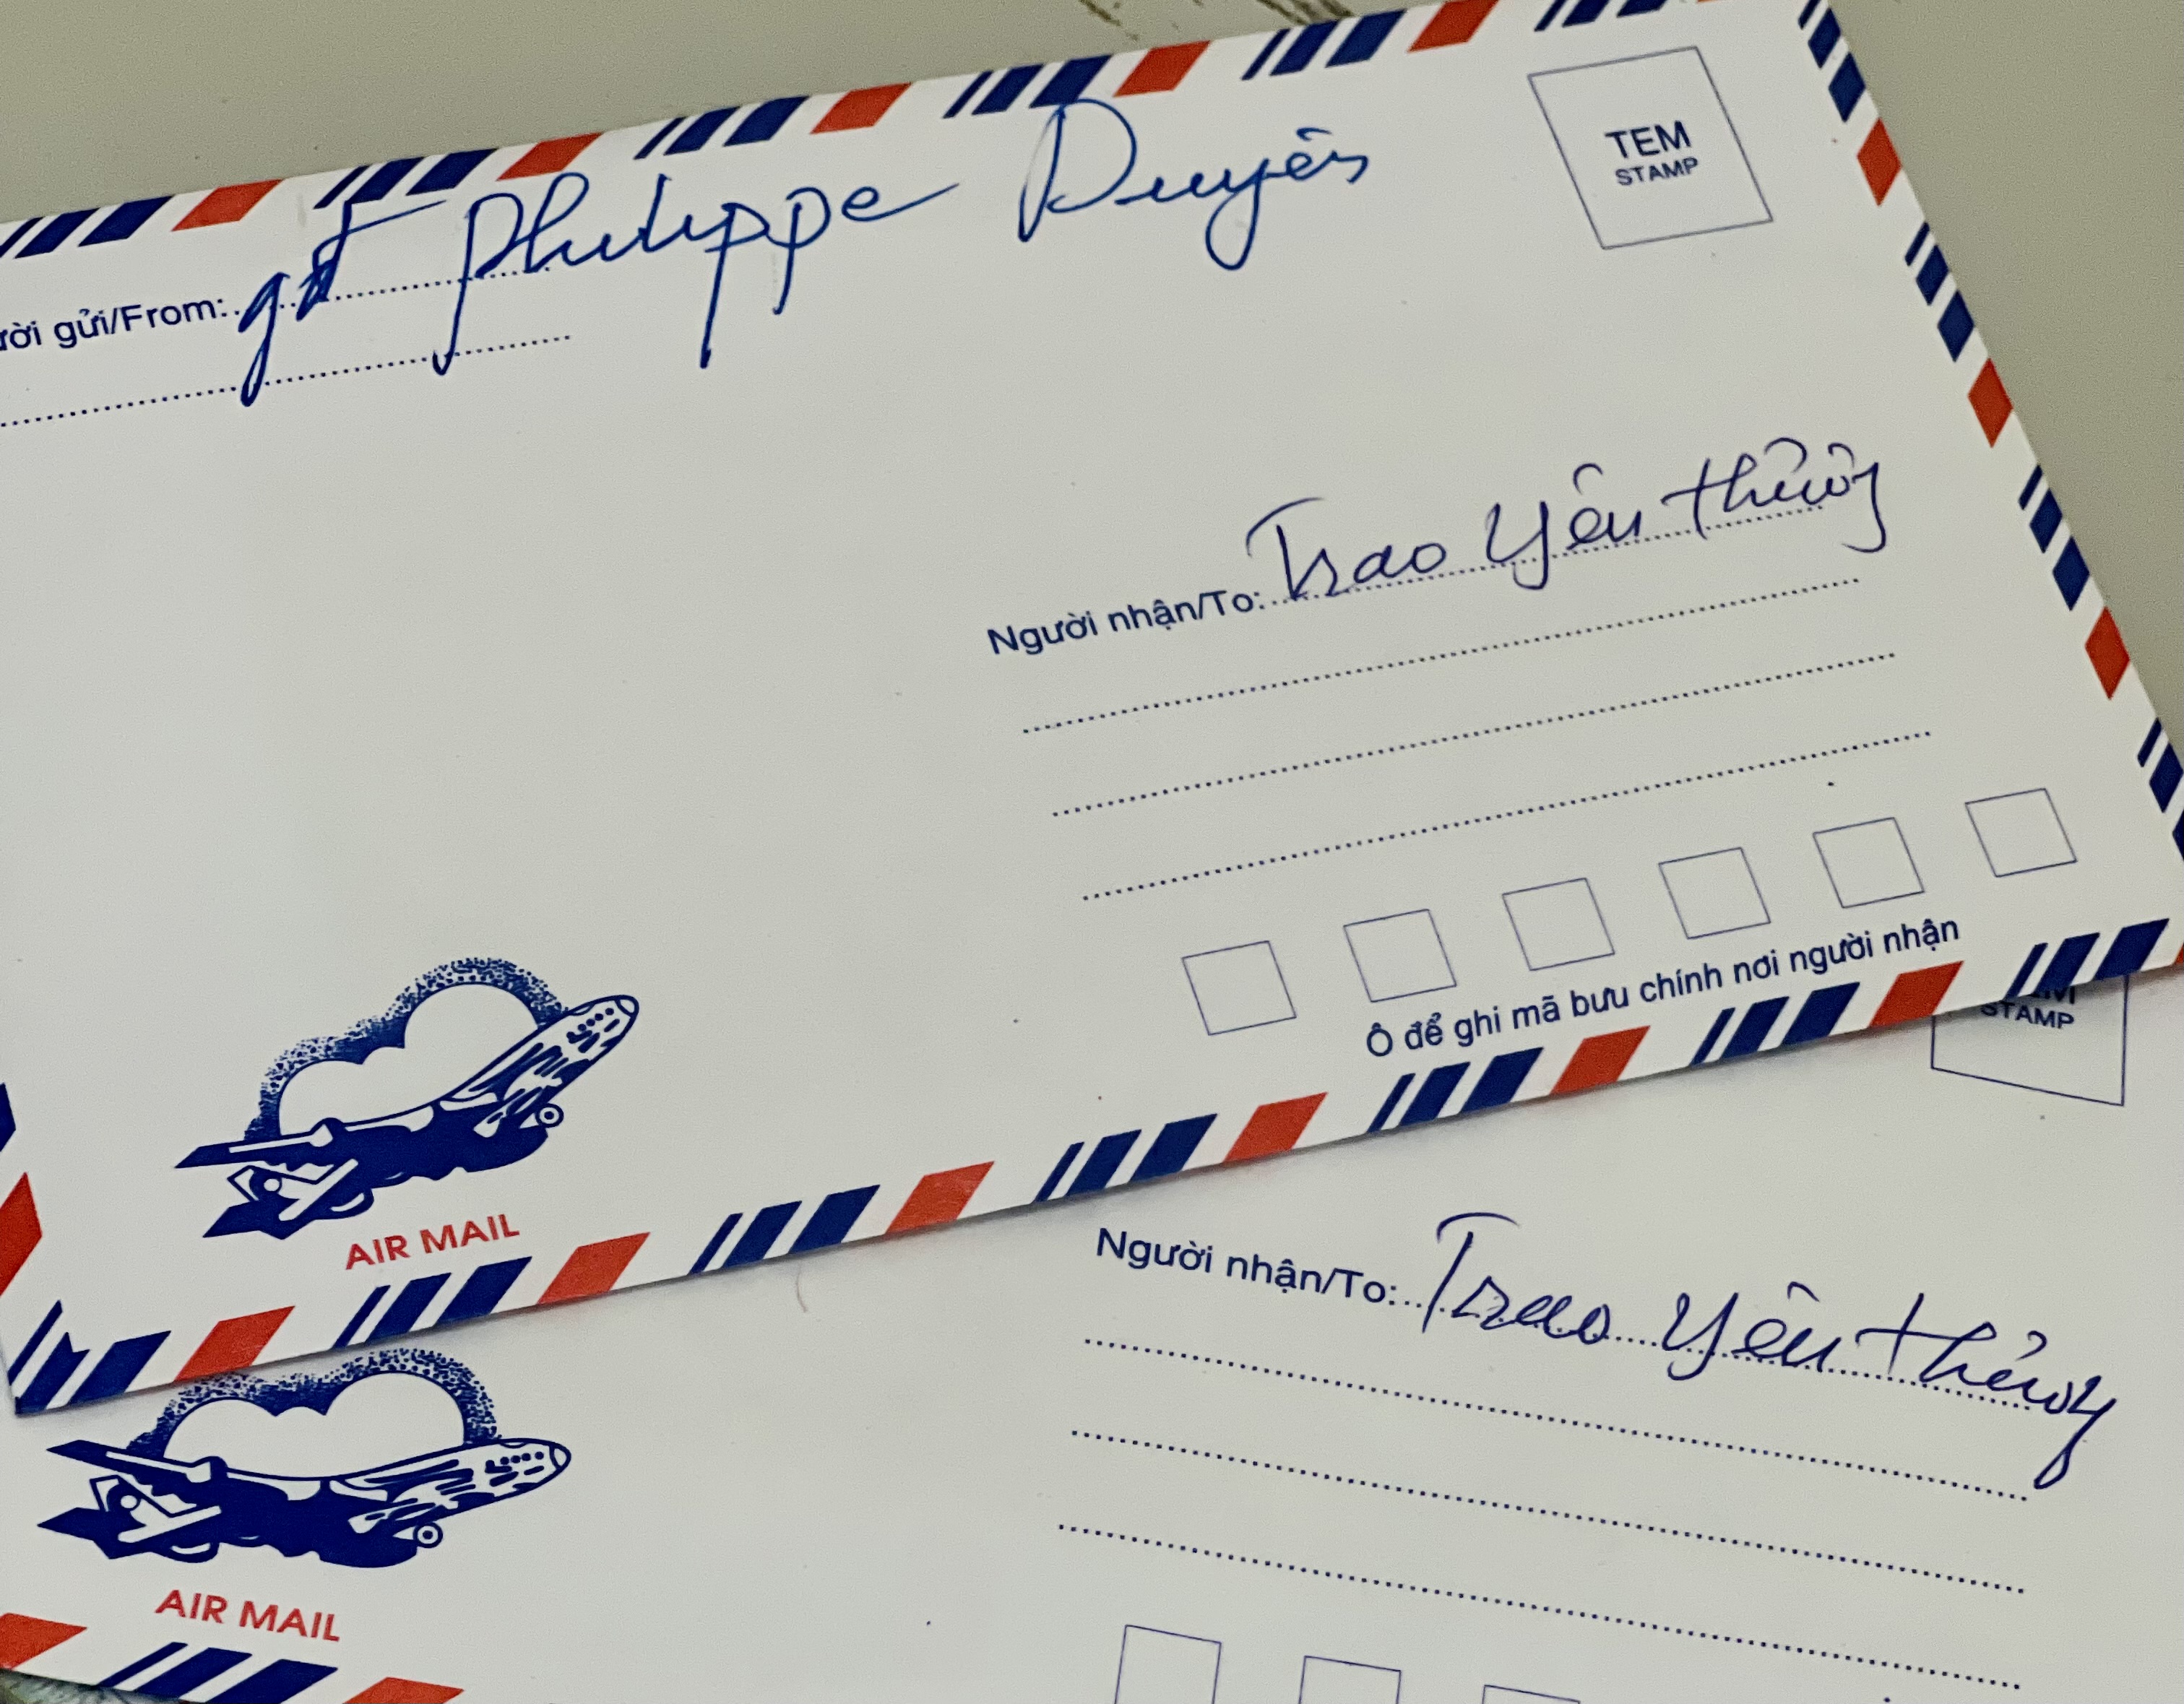 TEM
STAMP
ười gửi/From: gđ Philippe Duyên
Người nhận/To: Trao Yêu thương
Ô để ghi mã bưu chính nơi người nhận
AIR MAIL
STAMP
Người nhận/To: Trao Yêu thương
AIR MAIL